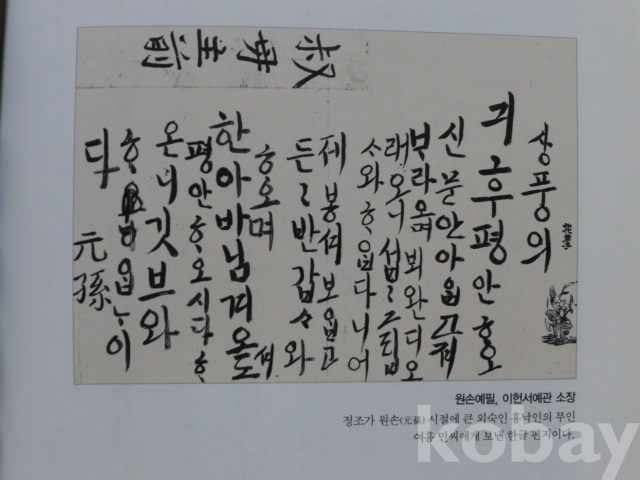 叔母主前
상풍의
긔후평안ᄒᆞ오
신 문안 아ᄋᆞᆸ고져
ᄇᆞ라오며 뵈완디 오
래오니 섭〻 그립
ᄉᆞ와 ᄒᆞᄋᆞᆸ다니 어
제 봉셔 보ᄋᆞᆸ고
든〻 반갑ᄉᆞ와
ᄒᆞ오며
한아바님겨오셔도
평안ᄒᆞ오시다 ᄒᆞ
오니 깃브와
ᄒᆞᄋᆞᆸᄂᆞ이
다
元孫
원손예필, 이헌서예관 소장
정조가 원손(元孫) 시절에 큰 외숙인 홍낙인의 부인
여흥 민씨에게 보낸 한글 편지이다.
kobay